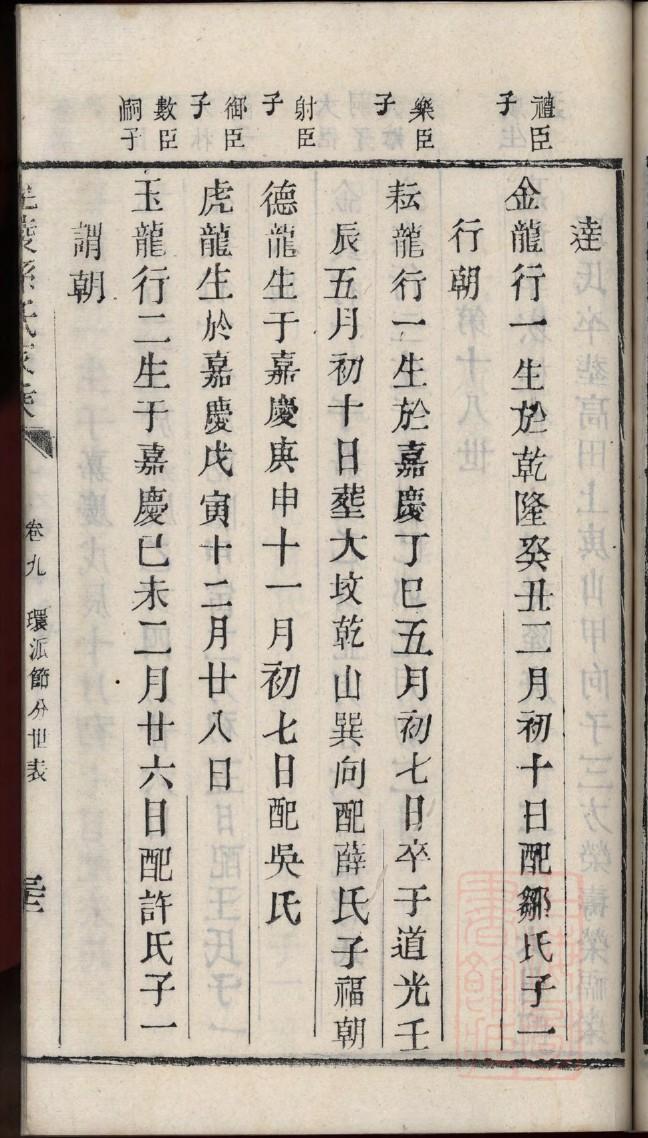 達
禮臣子
金龍行一生於乾隆癸丑三月初十日配鄒氏子一
行朝
樂臣子
耘龍行一生於嘉慶丁巳五月初七日卒于道光壬
辰五月初十日塟大坟乾山巽向配薛氏子福朝
射臣子
德龍生于嘉慶庚申十一月初七日配吳氏
御臣子
虎龍生於嘉慶戊寅十二月廿八日
數臣嗣子
玉龍行二生于嘉慶巳未二月廿六日配許氏子一
謂朝
孫氏家乘
卷九
環派節分世表